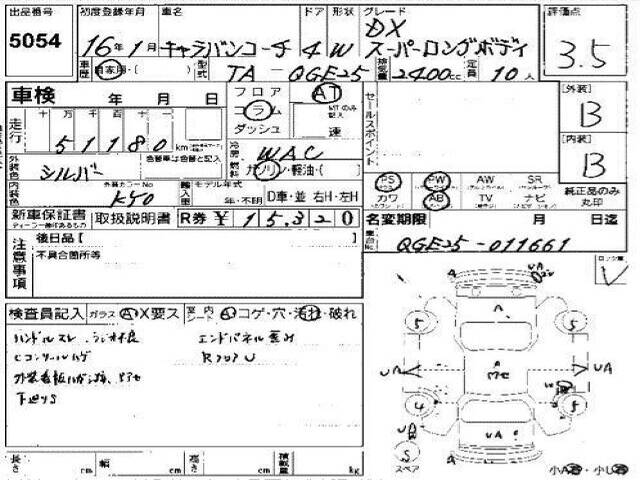 出品番号 初度登録年月 車名 ドア 形状 グレード 評価点
5054 16年1月 キャラバンコーチ 4 W DX スーパーロングボディ 3.5
車歴 自家用・( ) 型式 TA-QGE25 排気量 2400cc 定員 10人
車検 年 月 日 フロア AT
コラム MTのみ記入
ダッシュ 速
走行 十万千百十一
51180 km
外装色 シルバー 色替車は色替と記入
冷房 WAC
燃料 ガソリン・軽油・( )
内装色 外装カラーNo KY0 輸入車 モデル年式 年・不明 D車・並 右H・左H
新車保証書 取扱説明書 R券 ¥ 15,320
ディーラー様付あるもの
セールスポイント
[外装] B
[内装] B
PS PW AW SR
カワ AB TV ナビ
純正品のみ丸印
名変期限 月 日迄
車台No QGE25-011661
注意事項
後日品[ ]
不具合箇所等
検査員記入 ガラス A X要ス 室内 A コゲ・穴・汚れ・破れ
ハンドルスレ ラジオ不良 エンドパネル歪み
Cコンソールハゲ RフロアU
下廻りS
長さ cm 幅 cm 高さ cm 積載量 kg
ロック車 V
A UA
5 5
A
UA UA
4 5
UA
S スペア
A
小A 小U